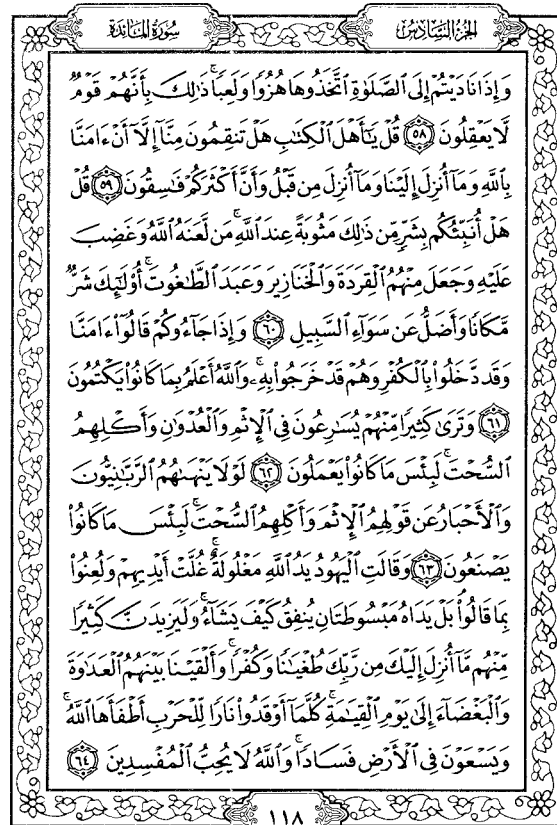 سُورَةُ المَائدة
الجُزءُ السَّادِسُ
وَإِذَا نَادَيْتُمْ إِلَى ٱلصَّلَوٰةِ ٱتَّخَذُوهَا هُزُوًا وَلَعِبًا ۚ ذَٰلِكَ بِأَنَّهُمْ قَوْمٌ
لَّا يَعْقِلُونَ ٥٨ قُلْ يَـٰٓأَهْلَ ٱلْكِتَـٰبِ هَلْ تَنقِمُونَ مِنَّآ إِلَّآ أَنْ ءَامَنَّا
بِٱللَّهِ وَمَآ أُنزِلَ إِلَيْنَا وَمَآ أُنزِلَ مِن قَبْلُ وَأَنَّ أَكْثَرَكُمْ فَـٰسِقُونَ ٥٩ قُلْ
هَلْ أُنَبِّئُكُم بِشَرٍّ مِّن ذَٰلِكَ مَثُوبَةً عِندَ ٱللَّهِ ۚ مَن لَّعَنَهُ ٱللَّهُ وَغَضِبَ
عَلَيْهِ وَجَعَلَ مِنْهُمُ ٱلْقِرَدَةَ وَٱلْخَنَازِيرَ وَعَبَدَ ٱلطَّـٰغُوتَ ۚ أُو۟لَـٰٓئِكَ شَرٌّ
مَّكَانًا وَأَضَلُّ عَن سَوَآءِ ٱلسَّبِيلِ ٦٠ وَإِذَا جَآءُوكُمْ قَالُوٓا۟ ءَامَنَّا
وَقَد دَّخَلُوا۟ بِٱلْكُفْرِ وَهُمْ قَدْ خَرَجُوا۟ بِهِۦ ۚ وَٱللَّهُ أَعْلَمُ بِمَا كَانُوا۟ يَكْتُمُونَ
٦١ وَتَرَىٰ كَثِيرًا مِّنْهُمْ يُسَـٰرِعُونَ فِى ٱلْإِثْمِ وَٱلْعُدْوَٰنِ وَأَكْلِهِمُ
ٱلسُّحْتَ ۚ لَبِئْسَ مَا كَانُوا۟ يَعْمَلُونَ ٦٢ لَوْلَا يَنْهَىٰهُمُ ٱلرَّبَّـٰنِيُّونَ
وَٱلْأَحْبَارُ عَن قَوْلِهِمُ ٱلْإِثْمَ وَأَكْلِهِمُ ٱلسُّحْتَ ۚ لَبِئْسَ مَا كَانُوا۟
يَصْنَعُونَ ٦٣ وَقَالَتِ ٱلْيَهُودُ يَدُ ٱللَّهِ مَغْلُولَةٌ ۚ غُلَّتْ أَيْدِيهِمْ وَلُعِنُوا۟
بِمَا قَالُوا۟ ۘ بَلْ يَدَاهُ مَبْسُوطَتَانِ يُنفِقُ كَيْفَ يَشَآءُ ۚ وَلَيَزِيدَنَّ كَثِيرًا
مِّنْهُم مَّآ أُنزِلَ إِلَيْكَ مِن رَّبِّكَ طُغْيَـٰنًا وَكُفْرًا ۚ وَأَلْقَيْنَا بَيْنَهُمُ ٱلْعَدَٰوَةَ
وَٱلْبَغْضَآءَ إِلَىٰ يَوْمِ ٱلْقِيَـٰمَةِ ۚ كُلَّمَآ أَوْقَدُوا۟ نَارًا لِّلْحَرْبِ أَطْفَأَهَا ٱللَّهُ ۚ
وَيَسْعَوْنَ فِى ٱلْأَرْضِ فَسَادًا ۚ وَٱللَّهُ لَا يُحِبُّ ٱلْمُفْسِدِينَ ٦٤
١١٨